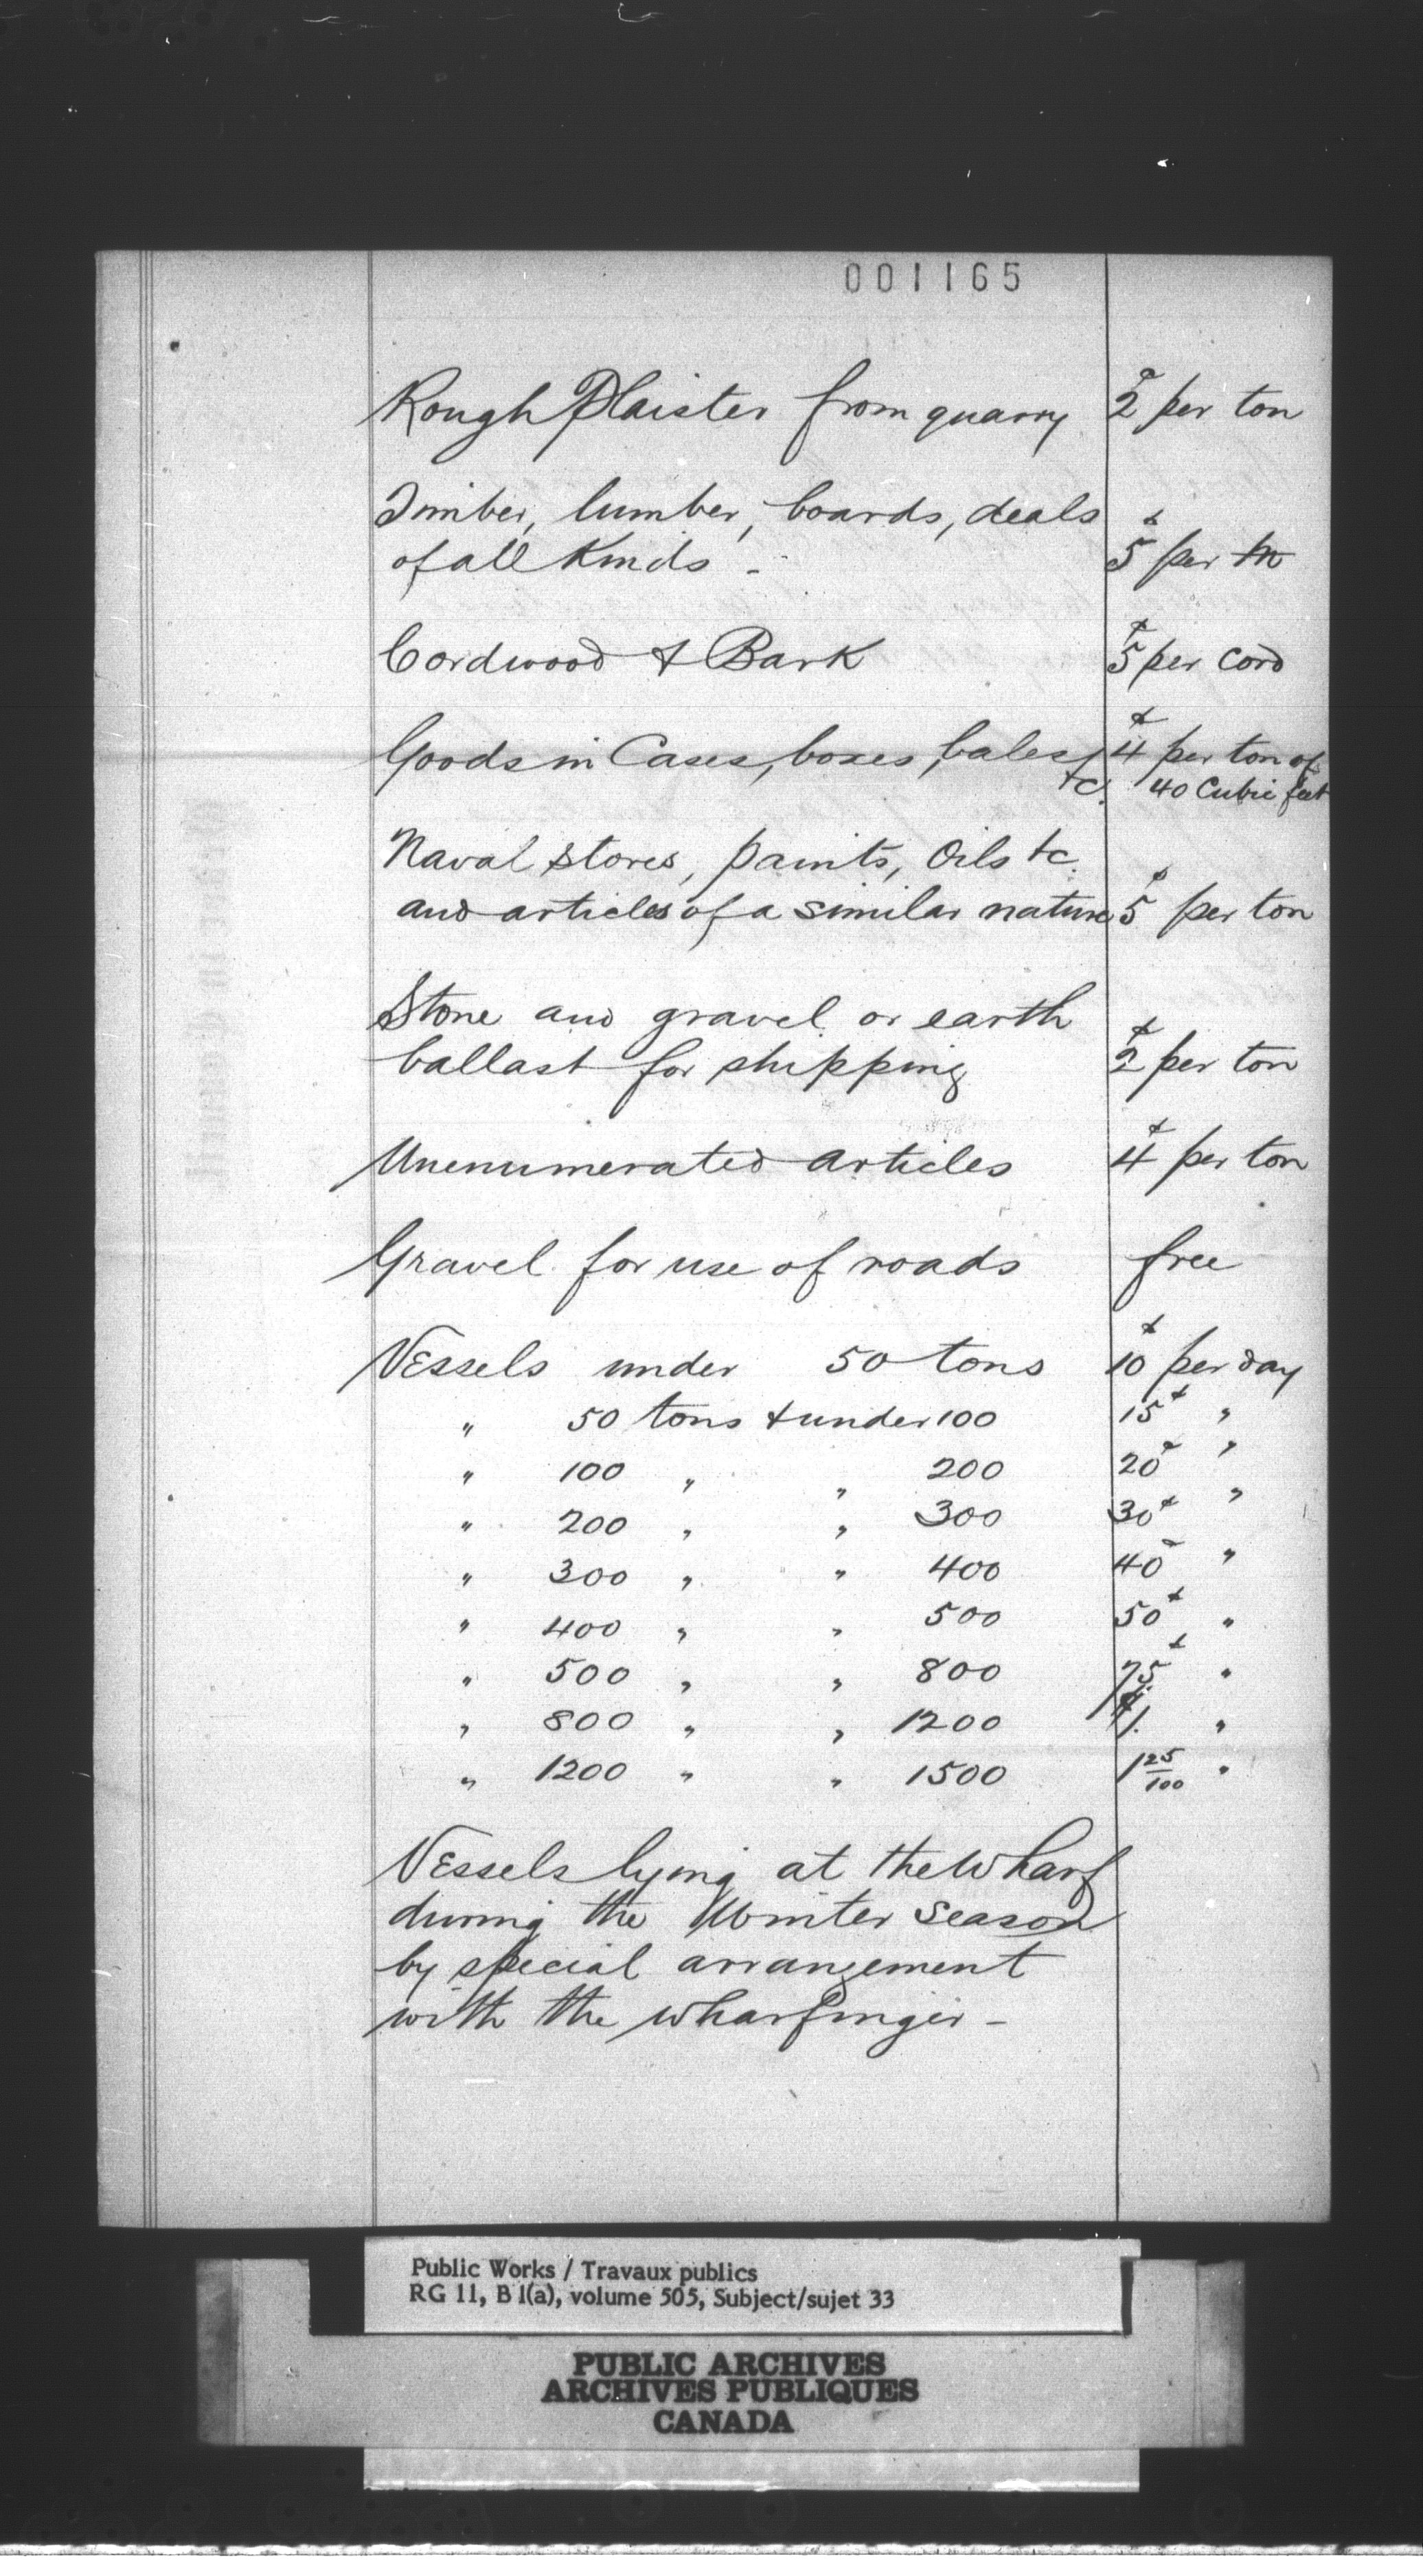 001165
Rough Plaister from quarry 2¢ per ton
Timber, lumber, boards, deals
of all Kinds - 5¢ per M
Cordwood & Bark 5¢ per Cord
Goods in Cases, boxes, bales 4¢ per ton of
&c. 40 Cubic feet
Naval Stores, paints, Oils &c.
and articles of a similar nature 5¢ per ton
Stone and gravel or earth
ballast for shipping 2¢ per ton
Unenumerated articles 4¢ per ton
Gravel for use of roads free
Vessels under 50 tons 10¢ per day
" 50 tons & under 100 15¢ "
" 100 " " 200 20¢ "
" 200 " " 300 30¢ "
" 300 " " 400 40¢ "
" 400 " " 500 50¢ "
" 500 " " 800 75¢ "
" 800 " " 1200 $1. "
" 1200 " " 1500 1 25/100 "
Vessels lying at the Wharf
during the Winter Season
by special arrangement
with the wharfinger -
Public Works / Travaux publics
RG 11, B 1(a), volume 505, Subject/sujet 33
PUBLIC ARCHIVES
ARCHIVES PUBLIQUES
CANADA